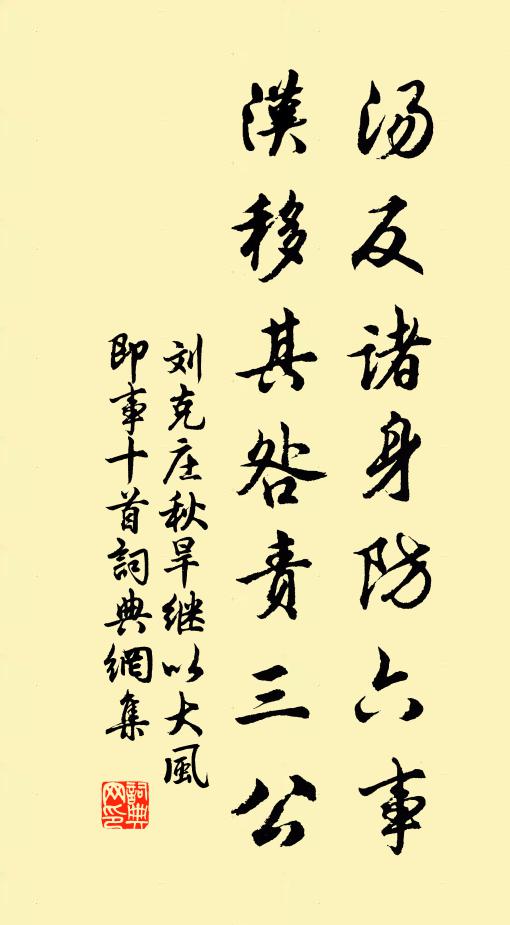 汤反诸身防六事
漢移其咎责三公
刘克庄秋旱继以大風
即事十首詞典網集
詞典
网印